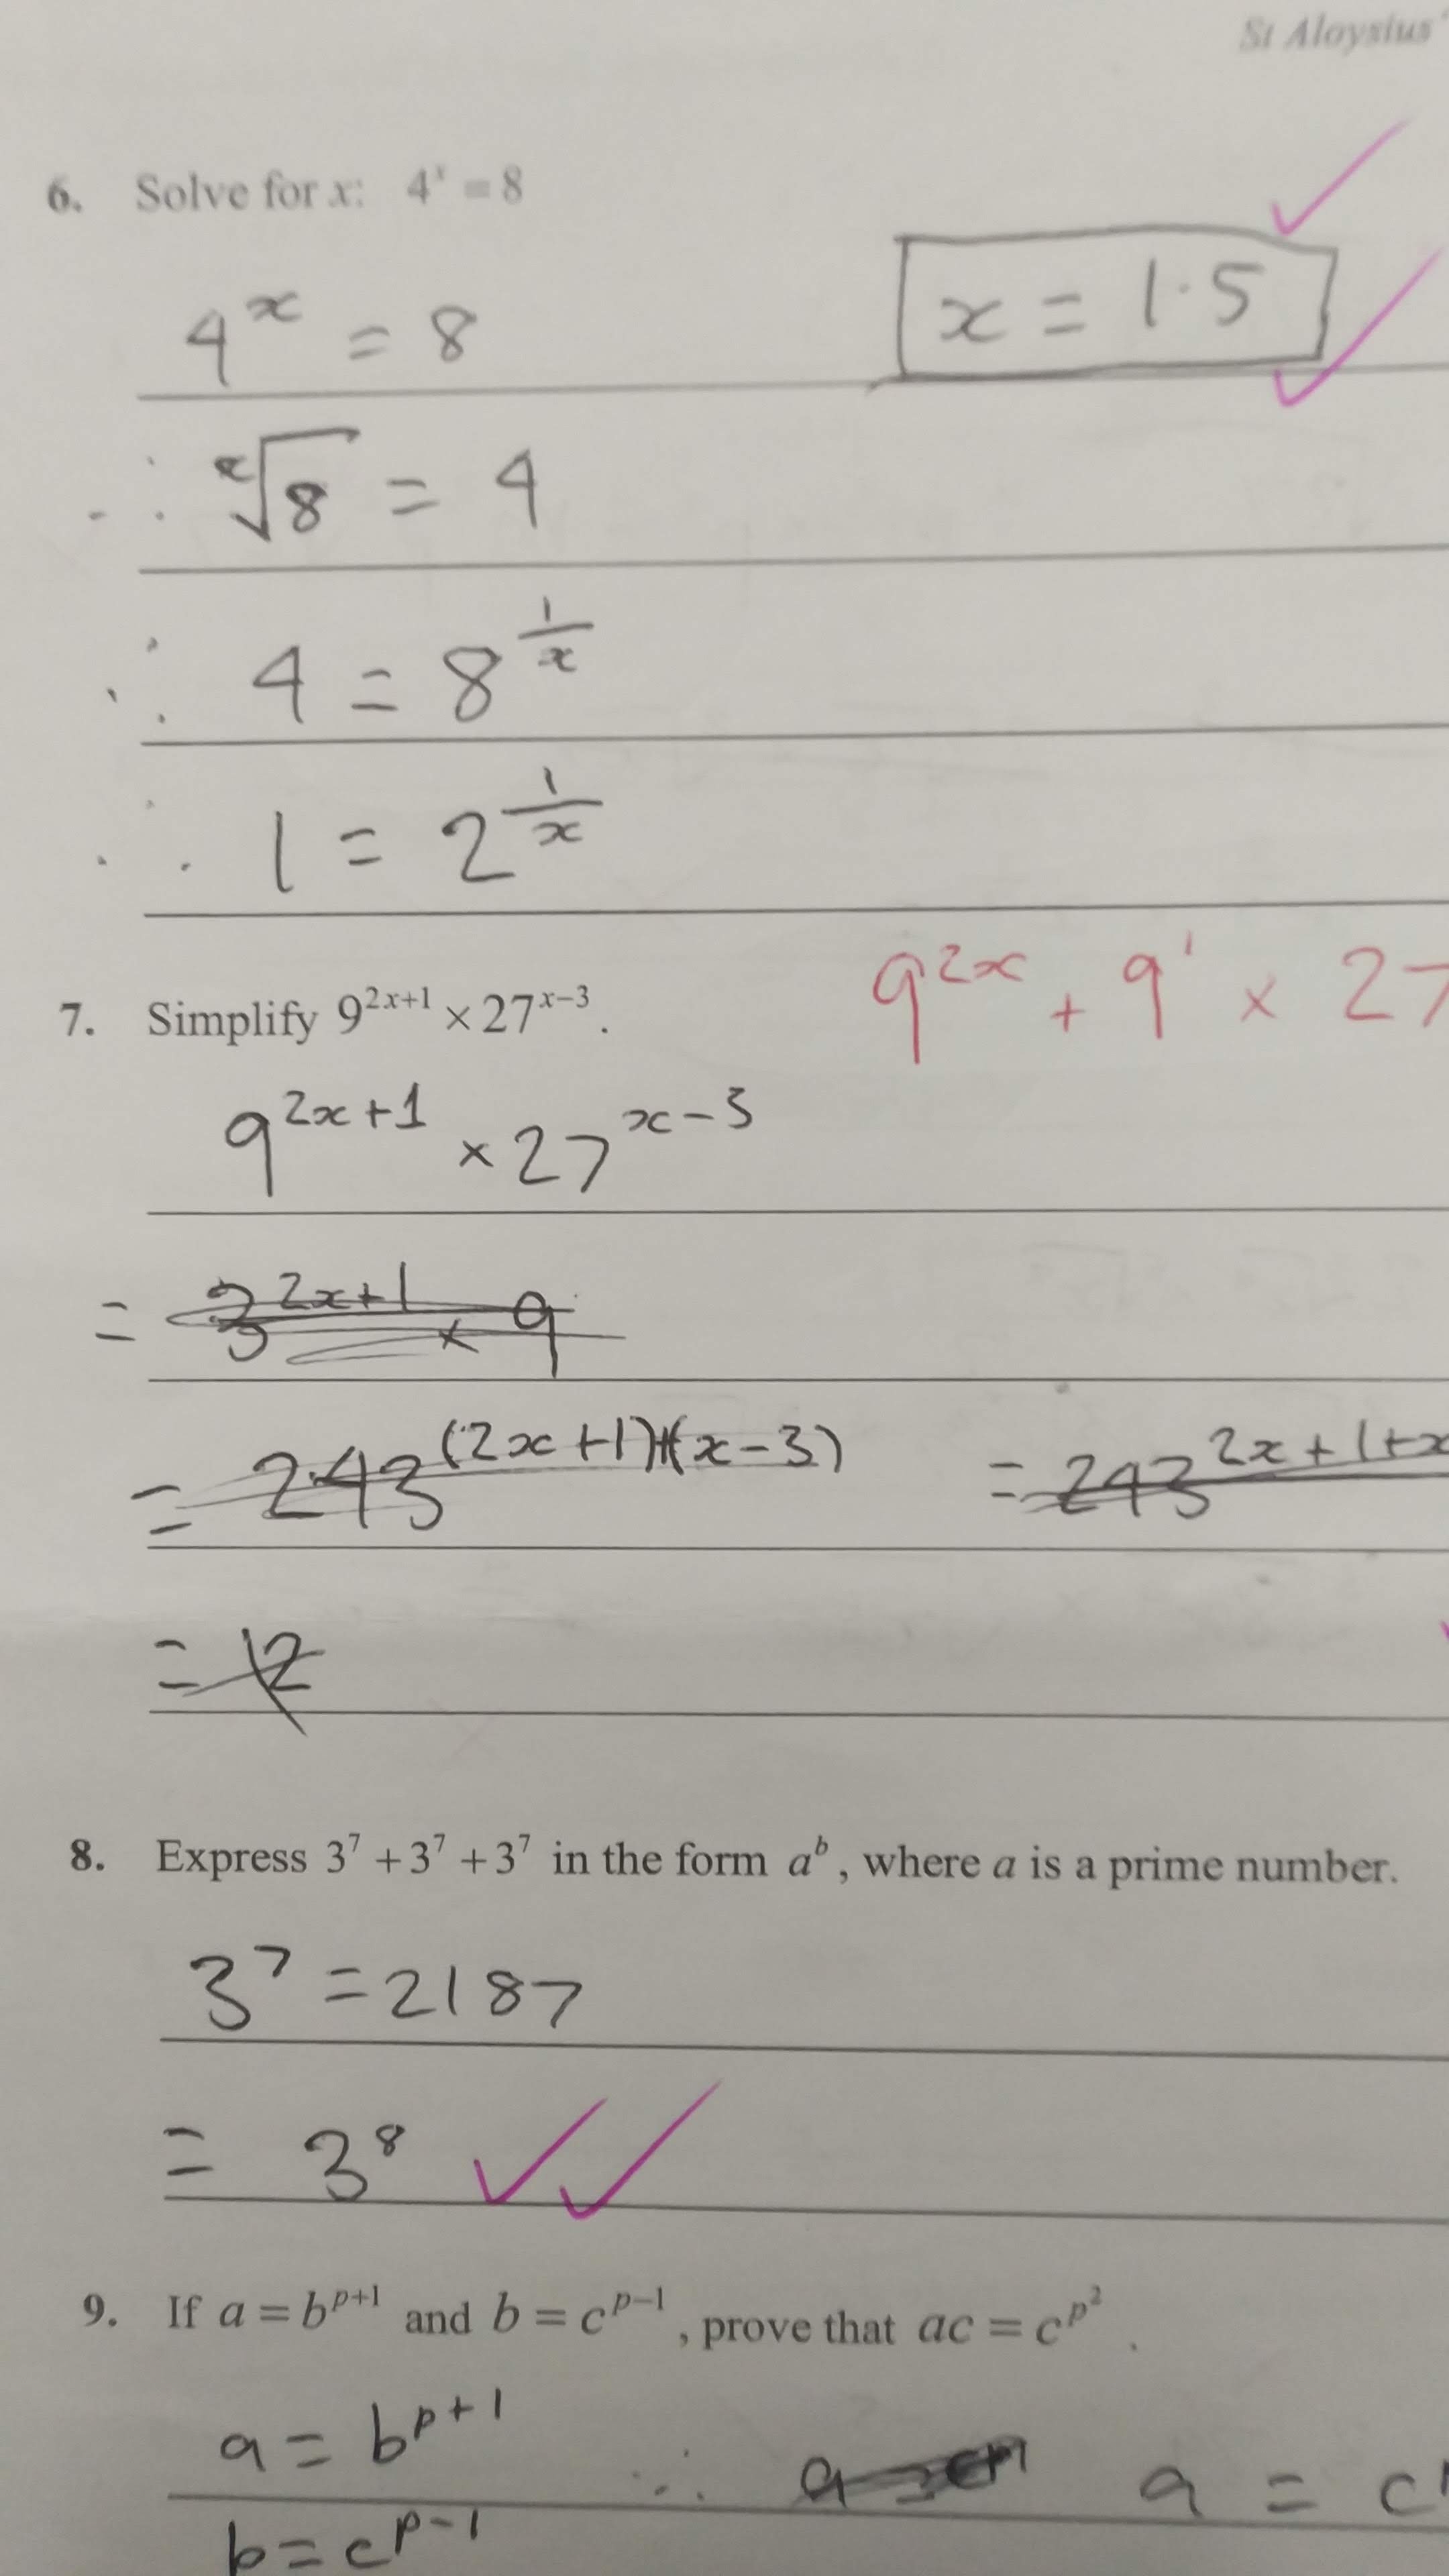 St Aloysius'
6. Solve for x: 4ˣ = 8
4ˣ = 8
x = 1.5
∴ ˣ√8 = 4
∴ 4 = 8^(1/x)
∴ 1 = 2^(1/x)
9²ˣ + 9¹ × 27
7. Simplify 9²ˣ⁺¹ × 27ˣ⁻³.
9²ˣ⁺¹ × 27ˣ⁻³
= 3²ˣ⁺¹ × 9
= 243^((2x+1)+(x-3)) = 243^(2x+1+x
= 12
8. Express 3⁷ + 3⁷ + 3⁷ in the form aᵇ, where a is a prime number.
3⁷ = 2187
= 3⁸
9. If a = bᵖ⁺¹ and b = cᵖ⁻¹, prove that ac = c^(p²).
a = bᵖ⁺¹ ∴ a = c
b = cᵖ⁻¹